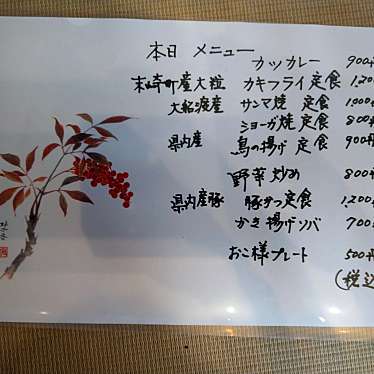 本日 メニュー
カツカレー 900円
末崎町産大粒 カキフライ定食 1,200
大船渡産 サンマ焼 定食 1,000円
ショーガ焼定食 800円
県内産 鳥の揚げ 定食 900円
野菜炒め 800円
県内産豚 豚かつ定食 1,200
かき揚げソバ 700
おこ様プレート 500円
(税込